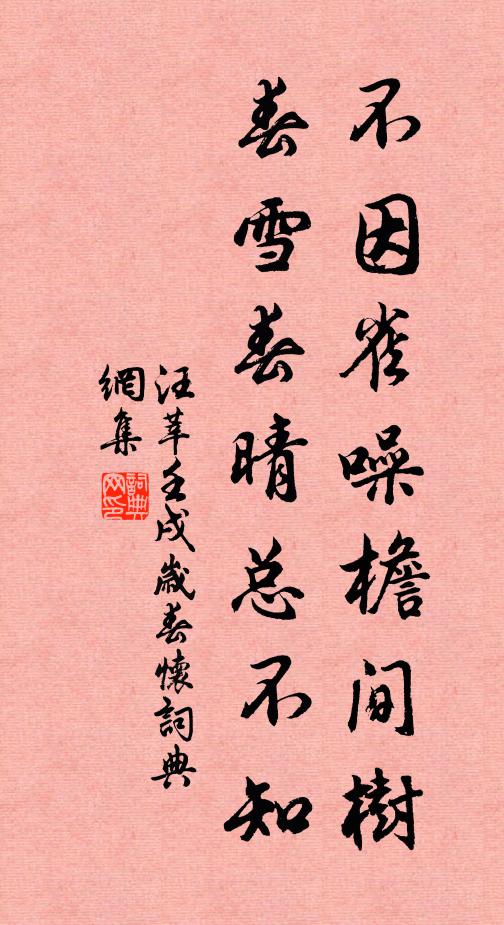 不因雀噪檐间樹
春雪春晴总不知
汪莘壬戌嵗春懷詞典
網集
詞典网印